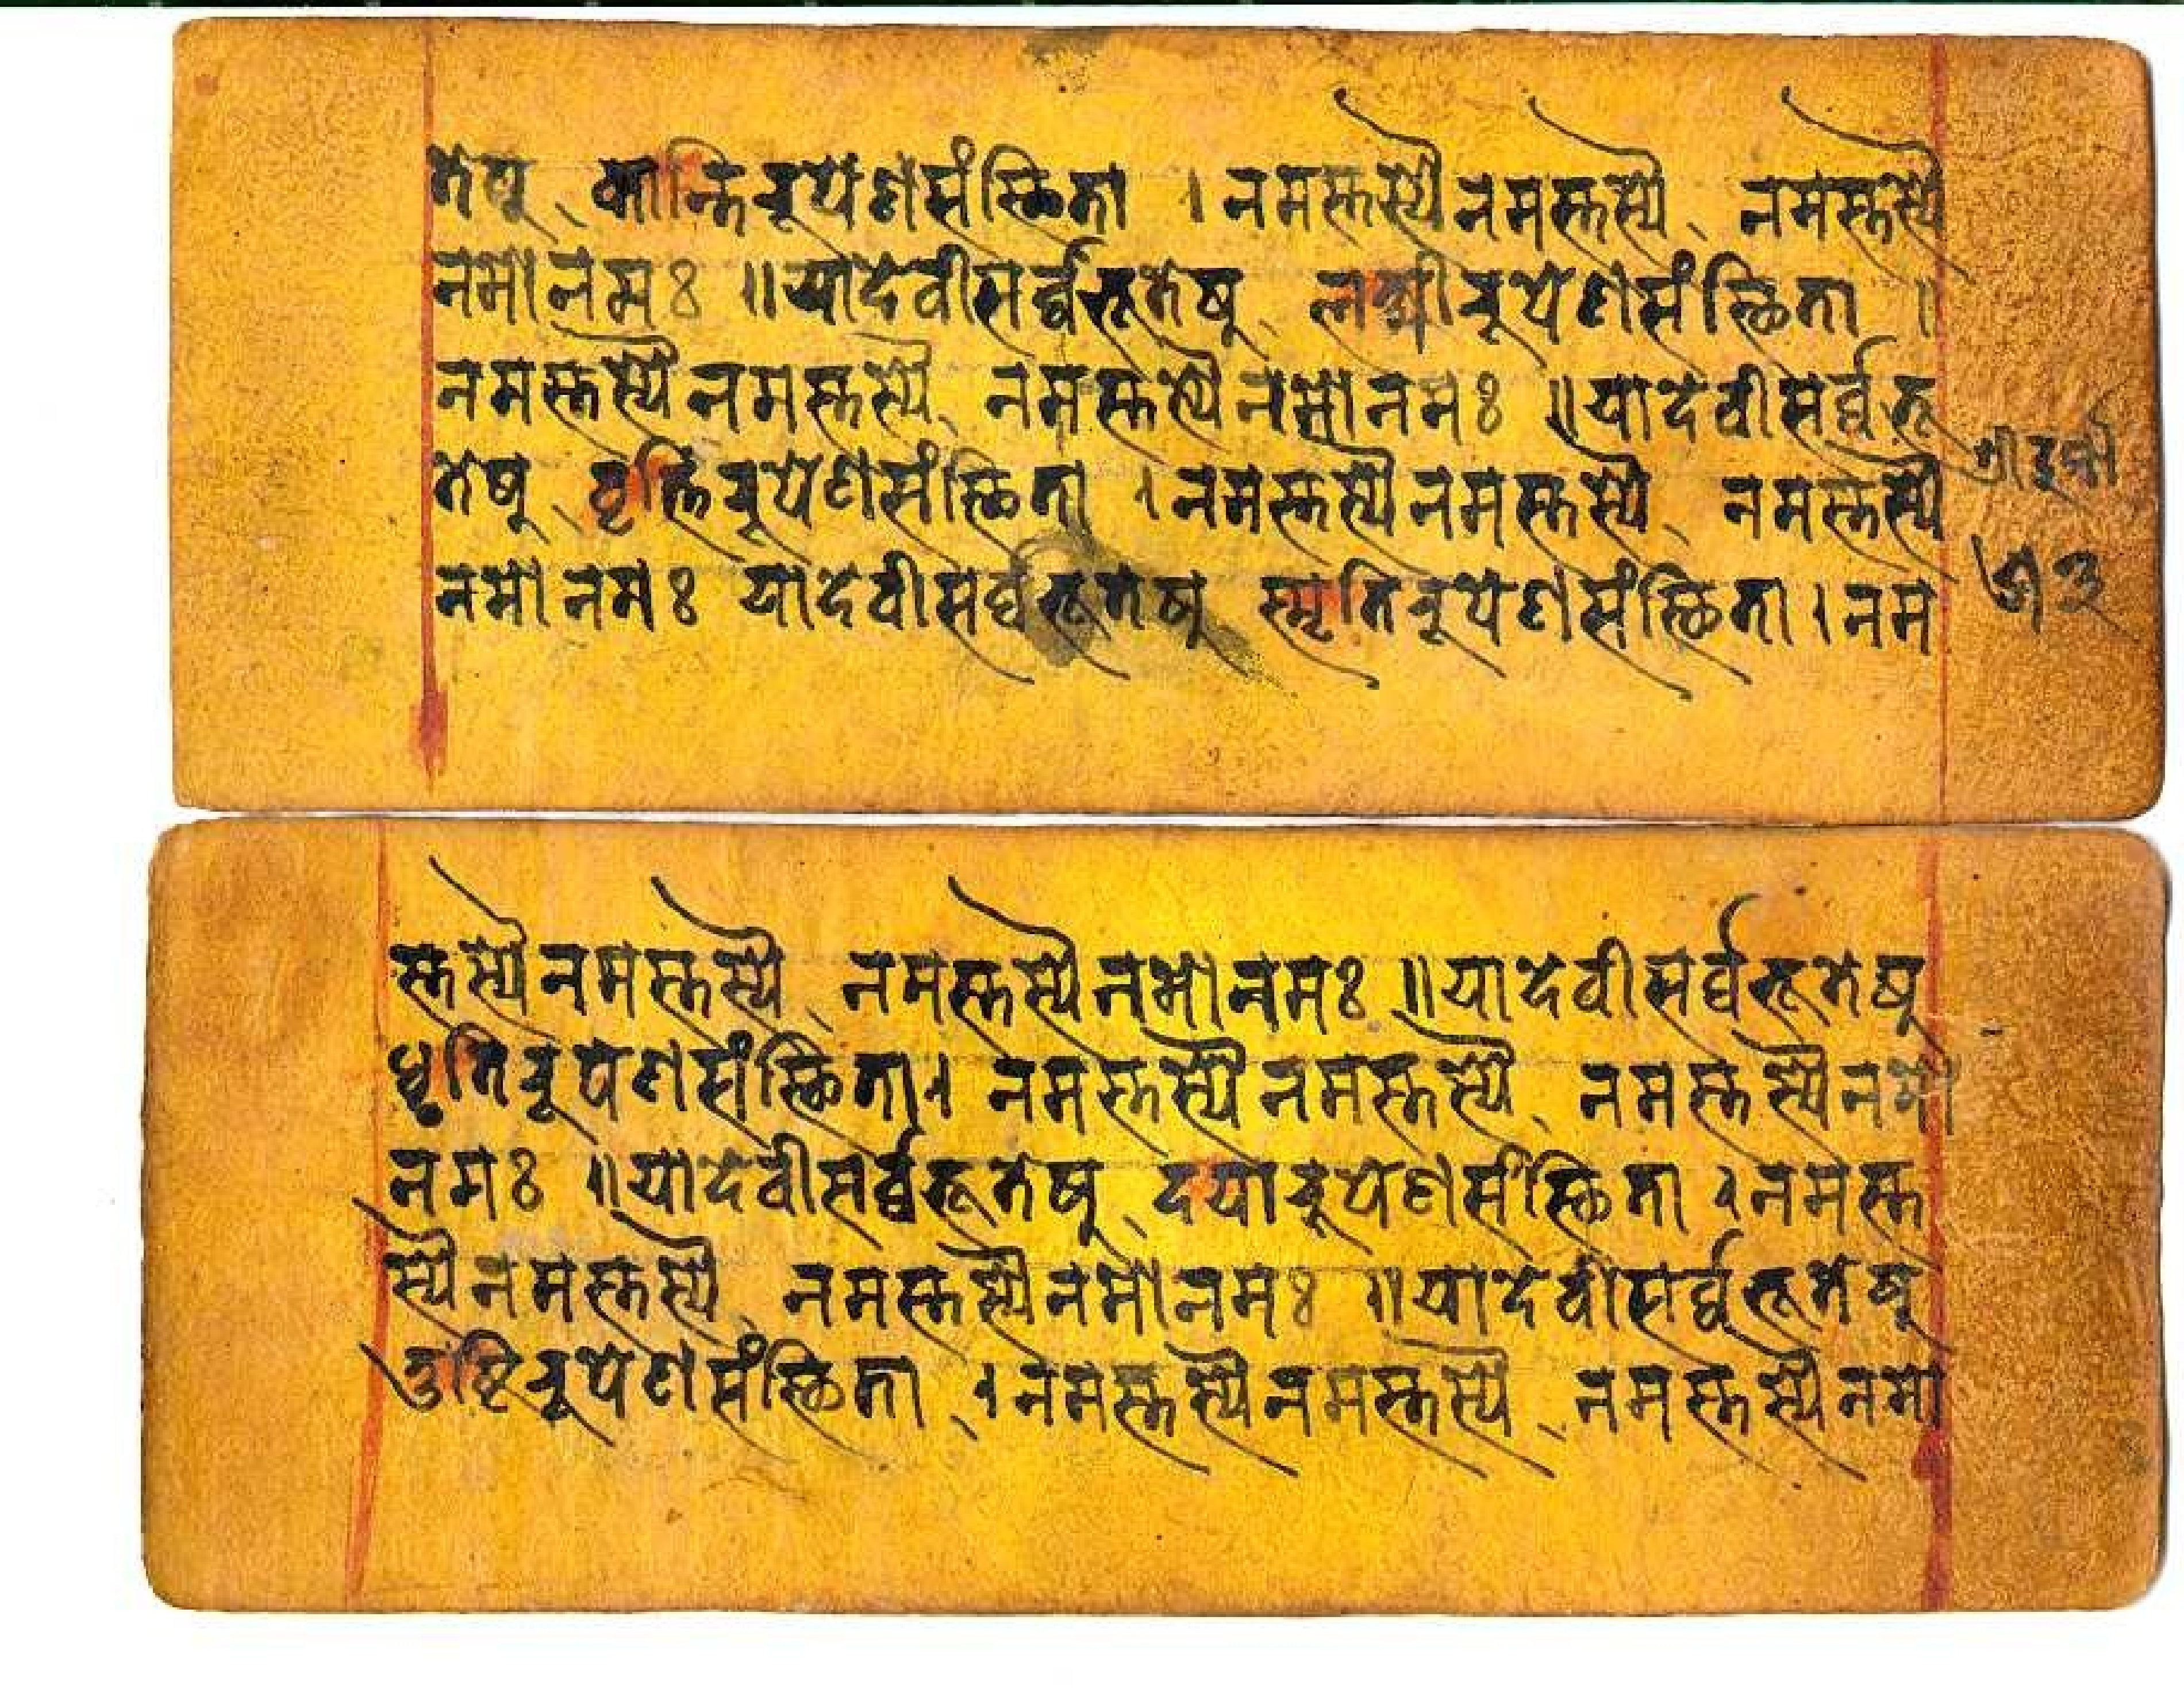 तेषू कान्तिरूपेणसंस्थिता । नमस्तस्यैनमस्तस्यै नमस्तस्यै
नमोनमः ॥ यादेवीसर्व्वभूतेषू लक्ष्मीरूपेणसंस्थिता ॥
नमस्तस्यैनमस्तस्यै नमस्तस्यैनमोनमः ॥ यादेवीसर्व्वभू
तेषू वृत्तिरूपेणसंस्थिता । नमस्तस्यैनमस्तस्यै नमस्तस्यै
नमोनमः यादेवीसर्व्वभूतेषू स्मृतिरूपेणसंस्थिता । नम
स्तस्यैनमस्तस्यै नमस्तस्यैनमोनमः ॥ यादेवीसर्व्वभूतेषू
धृतिरूपेणसंस्थिता । नमस्तस्यैनमस्तस्यै नमस्तस्यैनमो
नमः ॥ यादेवीसर्व्वभूतेषू दयारूपेणसंस्थिता । नमस्त
स्यैनमस्तस्यै नमस्तस्यैनमोनमः ॥ यादेवीसर्व्वभूतेषू
तुष्टिरूपेणसंस्थिता । नमस्तस्यैनमस्तस्यै नमस्तस्यैनमो